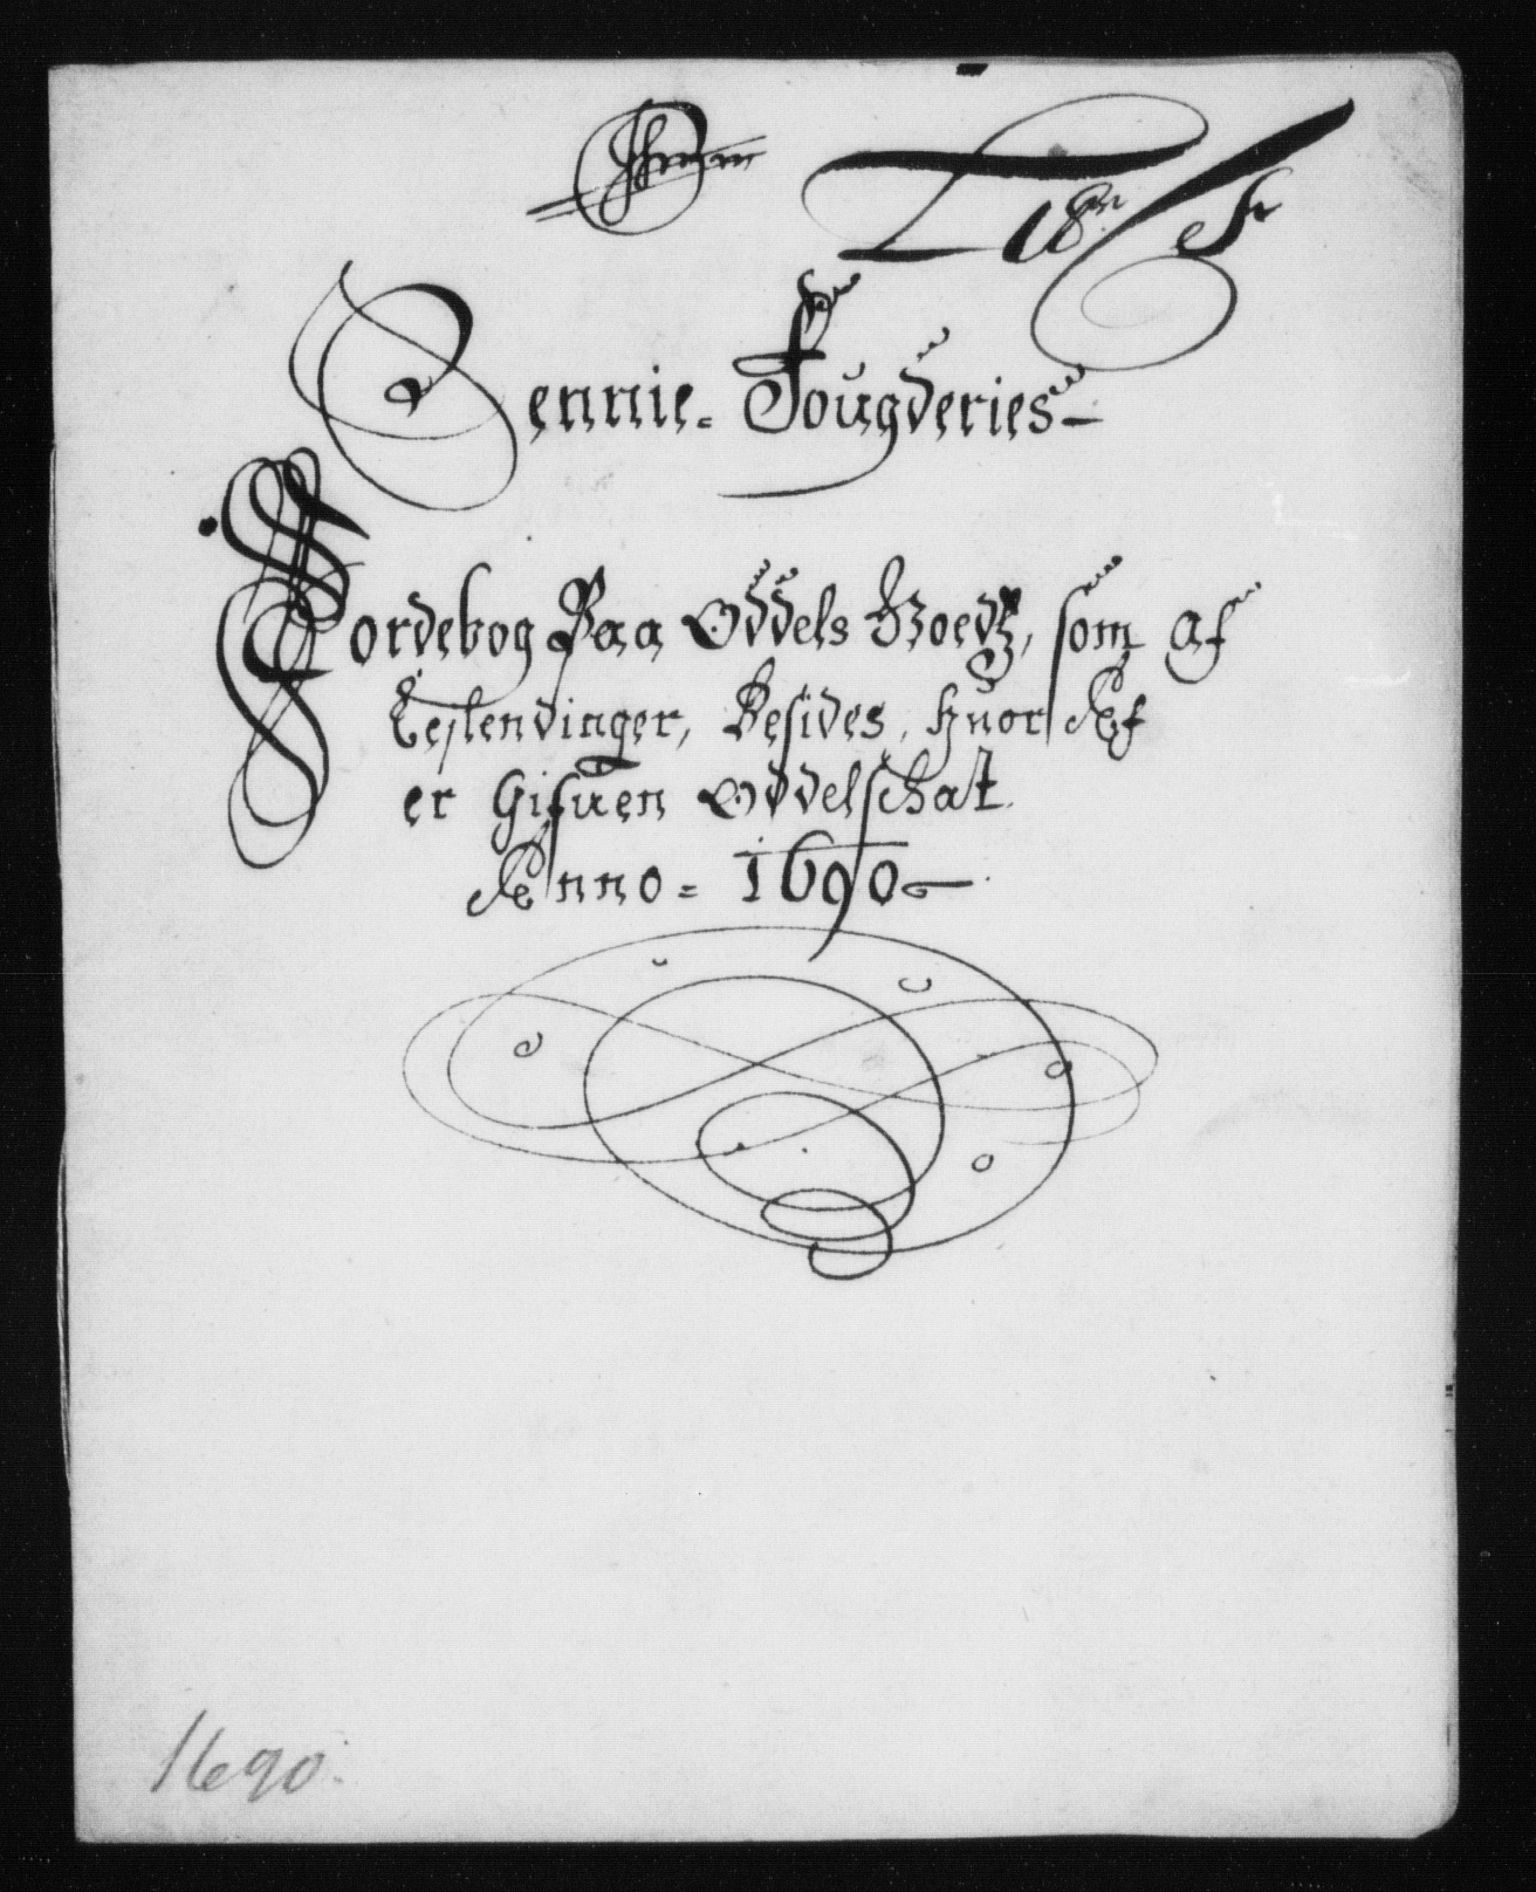 18
Bennie= Fougderies
Jordebog Paa Oddels Goedtz, som af
Teylendinger, Besides, Huor Af
er Gifuen Oddelschat.
Anno= 1690
1690.